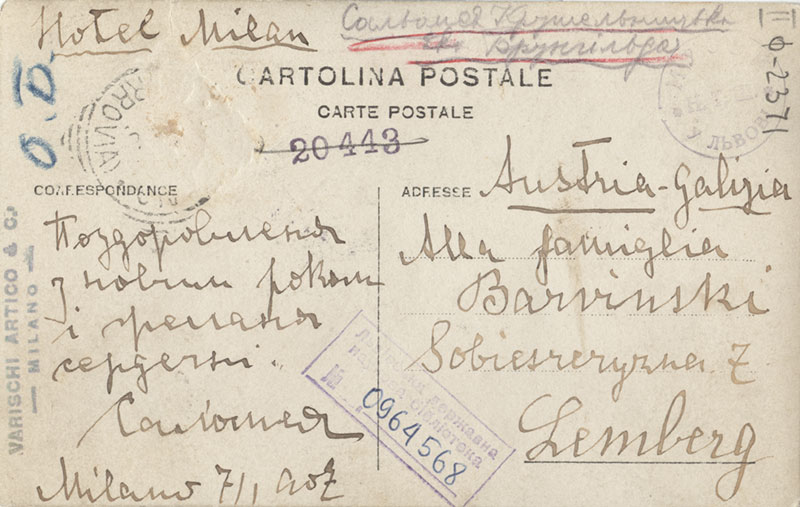 Hotel Milan
Сальомея Крушельницька
як Брунгільда
О-2371
CARTOLINA POSTALE
CARTE POSTALE
20443
CORRESPONDANCE
ADRESSE
Поздоровленя
з новим роком
і желаня
сердечні.
Саломея
Milano 7/1 907
Austria-Galizia
Alla famiglia
Barvinski
Sobiesczyzna 7
Lemberg
VARISCHI ARTICO & C.
— MILANO —
Львівська державна
наукова бібліотека
№ 0964568
У ЛЬВОВІ